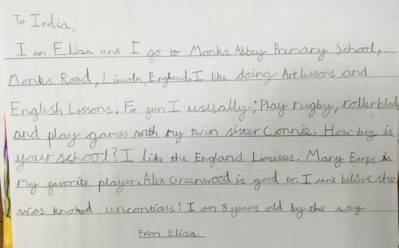 To India,
I am Eliza and I go to Monks Abbey Primary School,
Monks Road, Lincoln, England. I like doing Art lessons and
English Lessons. For fun I usually; Play rugby, rollerblad
and play games with my twin sister Connie. How big is
your school? I like the England Lionesses. Mary Earps is
my favorite player. Alex Greenwood is good to. I cant belive she
was knoked uncontias! I am 8 years old by the way
From Eliza.